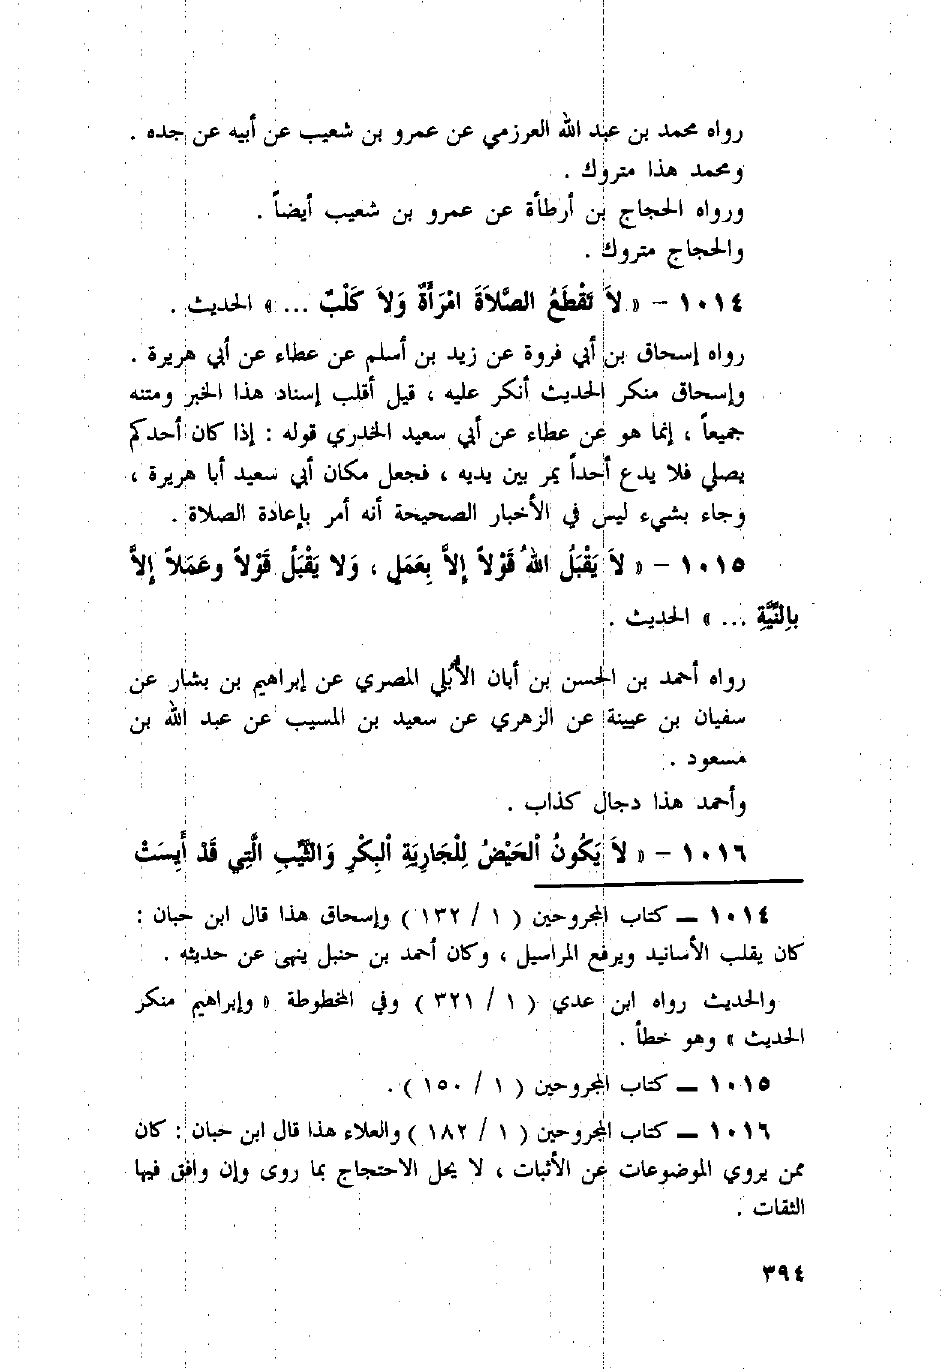 رواه محمد بن عبد الله العرزمي عن عمرو بن شعيب عن أبيه عن جده .
ومحمد هذا متروك .
ورواه الحجاج بن أرطأة عن عمرو بن شعيب أيضاً .
والحجاج متروك .
١٠١٤ – « لاَ تَقْطَعُ الصَّلاَةَ امْرَأَةٌ وَلاَ كَلْبٌ ... » الحديث .
رواه إسحاق بن أبي فروة عن زيد بن أسلم عن عطاء عن أبي هريرة .
وإسحاق منكر الحديث أنكر عليه ، قيل أقلب إسناد هذا الخبر ومتنه
جميعاً ، إنما هو عن عطاء عن أبي سعيد الخدري قوله : إذا كان أحدكم
يصلي فلا يدع أحداً يمر بين يديه ، فجعل مكان أبي سعيد أبا هريرة ،
وجاء بشيء ليس في الأخبار الصحيحة أنه أمر بإعادة الصلاة .
١٠١٥ – « لاَ يَقْبَلُ اللهُ قَوْلاً إلاَّ بِعَمَلٍ ، وَلا يَقْبَلُ قَوْلاً وعَمَلاً إلاَّ
بالنِّيَّةِ ... » الحديث .
رواه أحمد بن الحسن بن أبان الأُبُلي المصري عن إبراهيم بن بشار عن
سفيان بن عيينة عن الزهري عن سعيد بن المسيب عن عبد الله بن
مسعود .
وأحمد هذا دجال كذاب .
١٠١٦ – « لاَ يَكُونُ اْلحَيْضُ لِلْجَارِيَةِ اْلبِكْرِ وَالثَّيِّبِ الَّتِي قَدْ أَيِسَتْ
١٠١٤ — كتاب المجروحين ( ١ / ١٣٢ ) وإسحاق هذا قال ابن حبان :
كان يقلب الأسانيد ويرفع المراسيل ، وكان أحمد بن حنبل ينهى عن حديثه .
والحديث رواه ابن عدي ( ١ / ٣٢١ ) وفي المخطوطة « وإبراهيم منكر
الحديث » وهو خطأ .
١٠١٥ — كتاب المجروحين ( ١ / ١٥٠ ) .
١٠١٦ — كتاب المجروحين ( ١ / ١٨٢ ) والعلاء هذا قال ابن حبان : كان
ممن يروي الموضوعات عن الأثبات ، لا يحل الاحتجاج بما روى وإن وافق فيها
الثقات .
٣٩٤